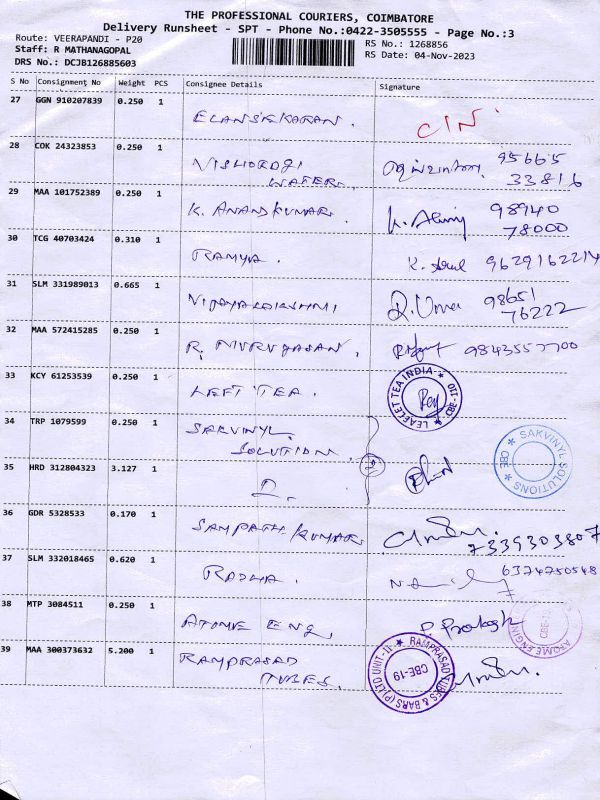 THE PROFESSIONAL COURIERS, COIMBATORE
Delivery Runsheet - SPT - Phone No.:0422-3505555 - Page No.:3
Route: VEERAPANDI - P20
Staff: R MATHANAGOPAL
DRS No.: DCJB126885603
RS No.: 1268856
RS Date: 04-Nov-2023
S No Consignment No Weight PCS Consignee Details Signature
27 GGN 910207839 0.250 1
ELANSEKARAN. CIN
28 COK 24323853 0.250 1
95665
33816
WATER.
29 MAA 101752389 0.250 1
K. ANANDKUMAR. 98940
78000
30 TCG 40703424 0.310 1
RAMYA. 9629162214
31 SLM 331989013 0.665 1
VIJAYALAKSHMI R.Uma 98651
76222
32 MAA 572415285 0.250 1
R. MURUGASAN. 9843557700
33 KCY 61253539 0.250 1
LEFT TEA. LEAFLET TEA INDIA CBE-110
34 TRP 1079599 0.250 1
SAKVINYL
SOLUTION.
SAKVINYL SOLUTIONS CBE
35 HRD 312804323 3.127 1
2
36 GDR 5328533 0.170 1
SAMPATH KUMAR 7339303807
37 SLM 332018465 0.620 1
RADHA. 6374750548
38 MTP 3084511 0.250 1
ATOME ENG, P. Prakash
39 MAA 300373632 5.200 1
RAMPRASAD
TUBES.
RAMPRASAD TUBES & BARS (P) LTD UNIT-II CBE-19